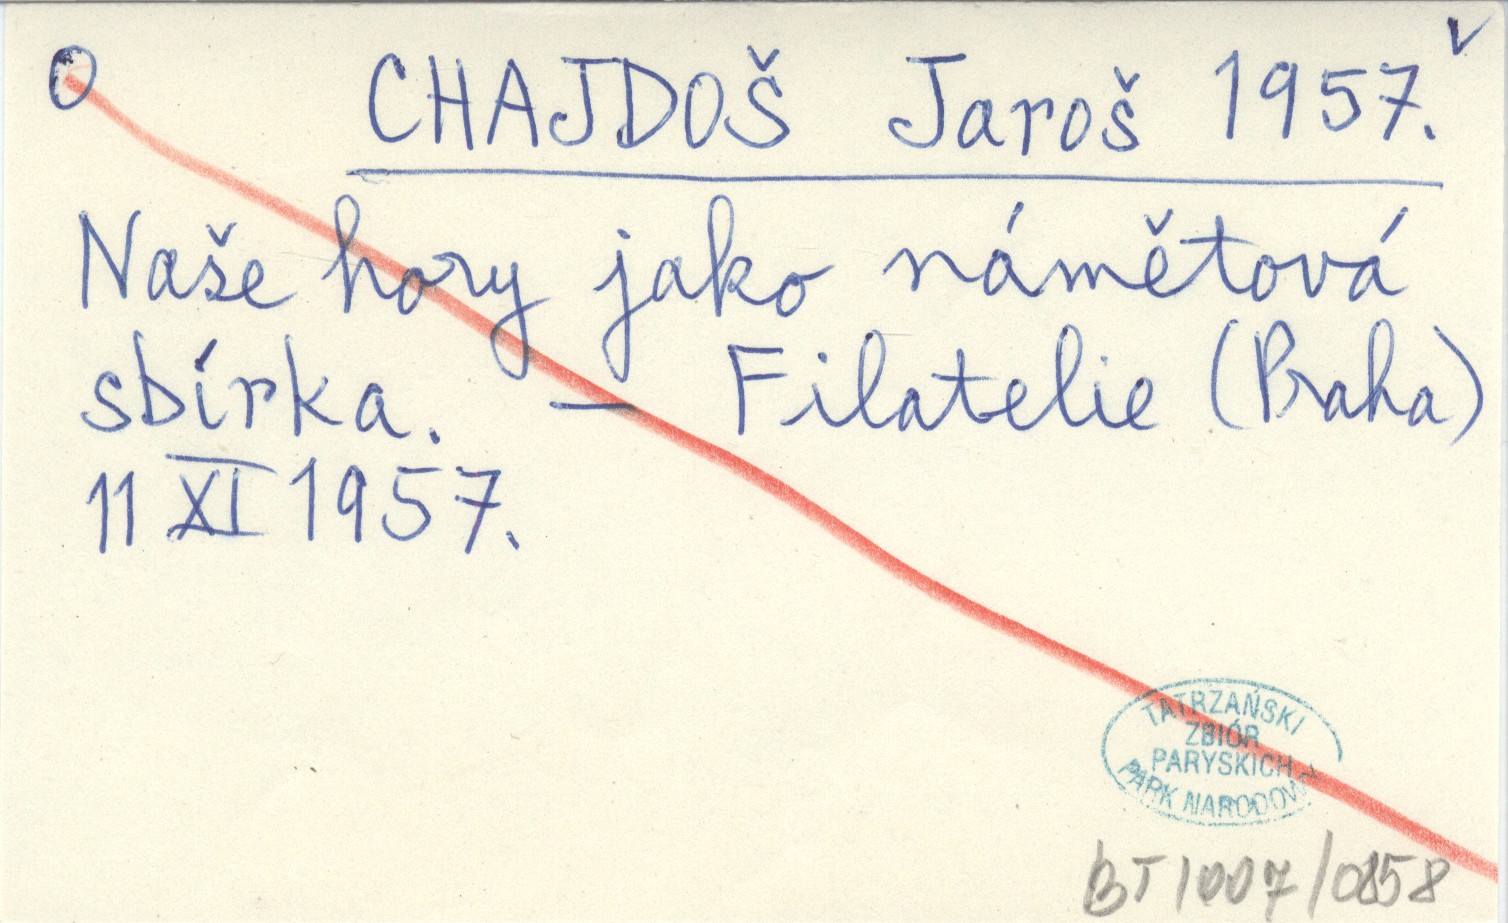 O CHAJDOŠ Jaroš 1957. v
Naše hory jako námětová
sbírka. — Filatelie (Praha)
11 XI 1957.
TATRZAŃSKI
ZBIÓR
PARYSKICH
PARK NARODOWY
BT 1007/0858